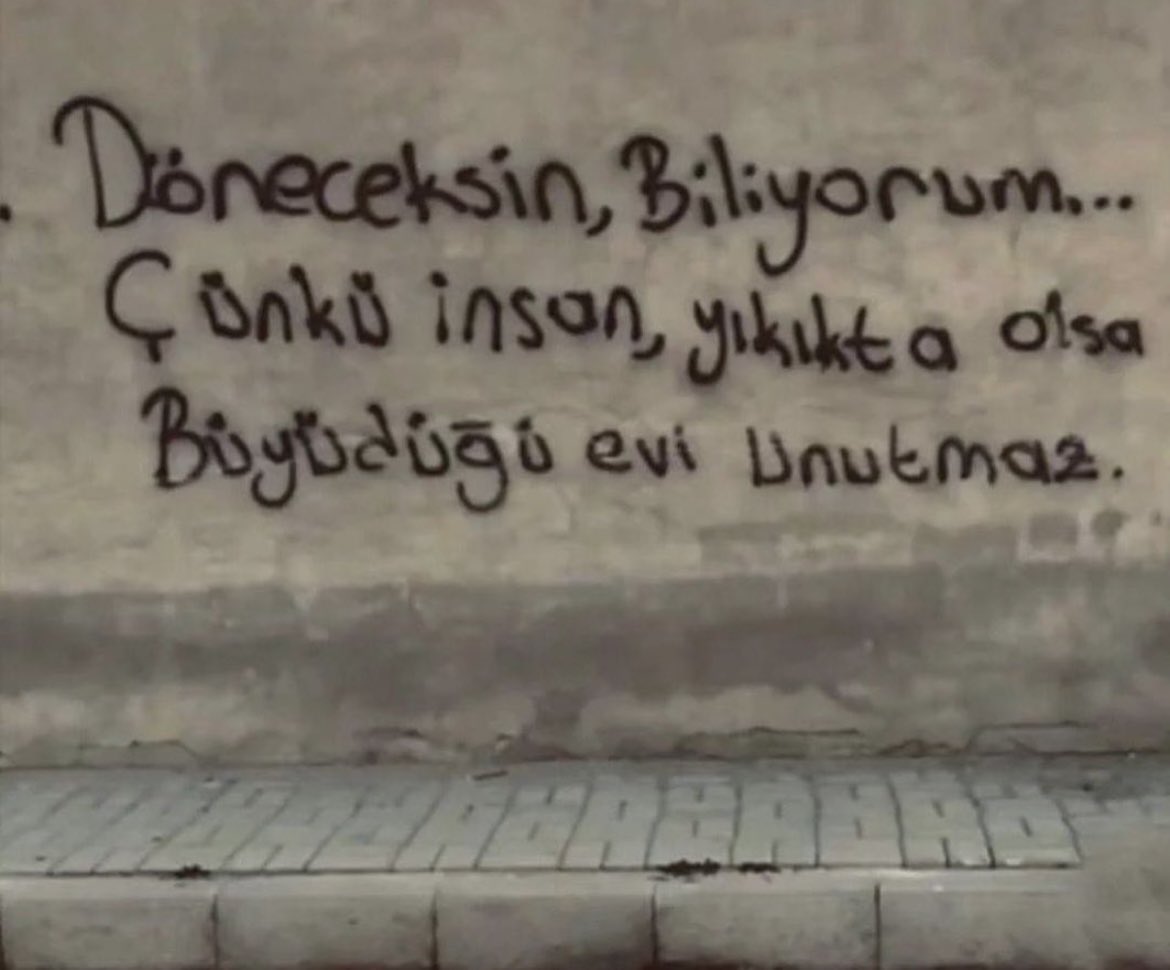 . Döneceksin, Biliyorum...
Çünkü insan, yıkıkta olsa
Büyüdüğü evi Unutmaz.